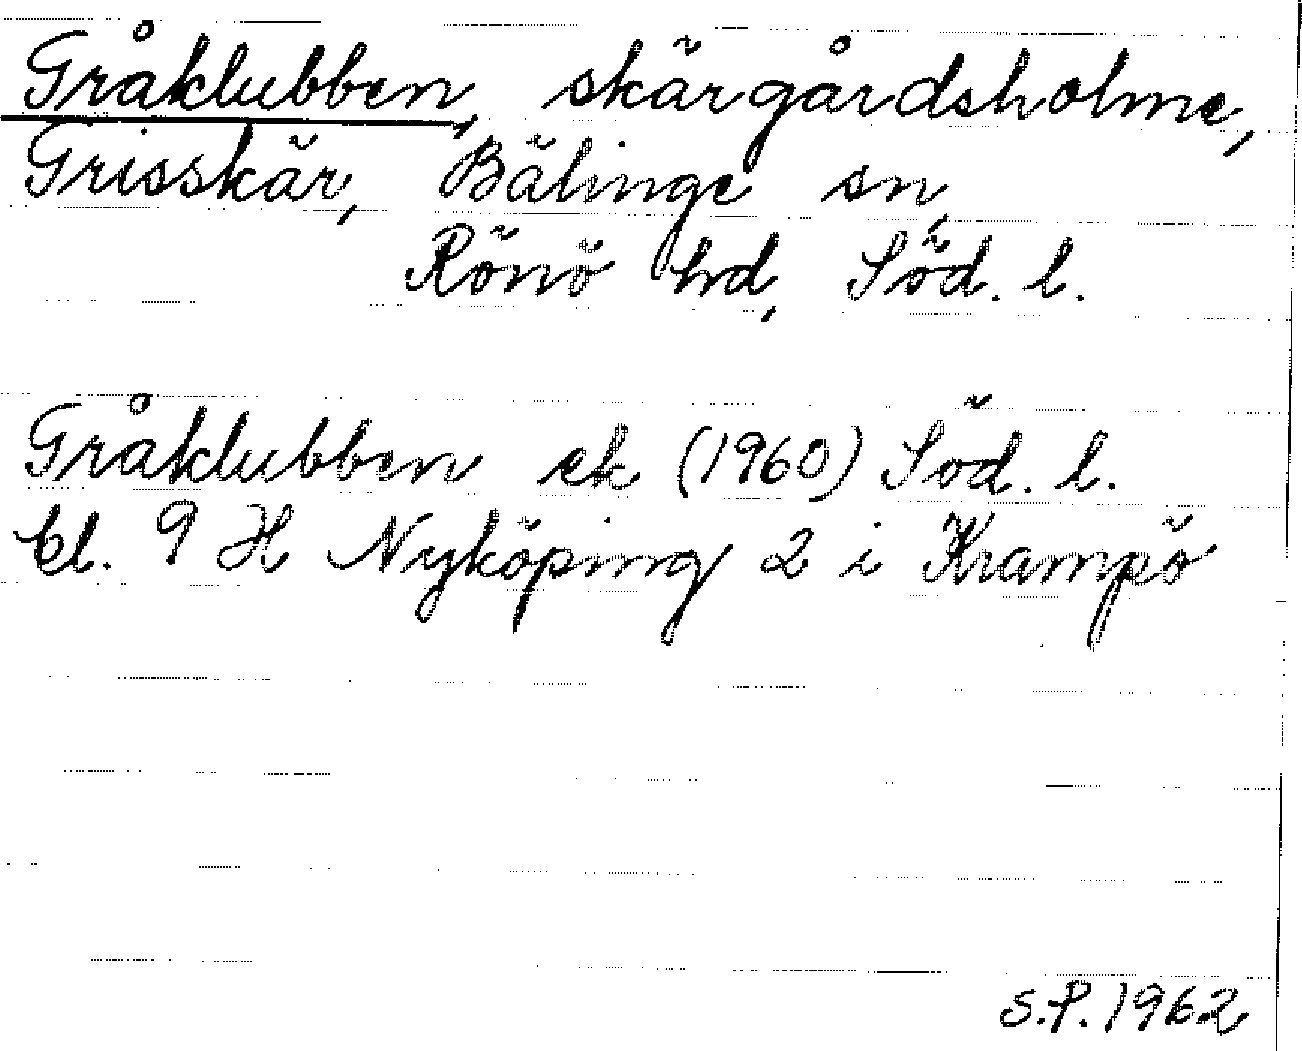 Gråklubben, skärgårdsholme,
Grisskär, Bälinge sn,
Rönö hd, Söd. l.
Gråklubben ek (1960) Söd. l.
bl. 9 H Nyköping 2 i Krampö
S.P. 1962